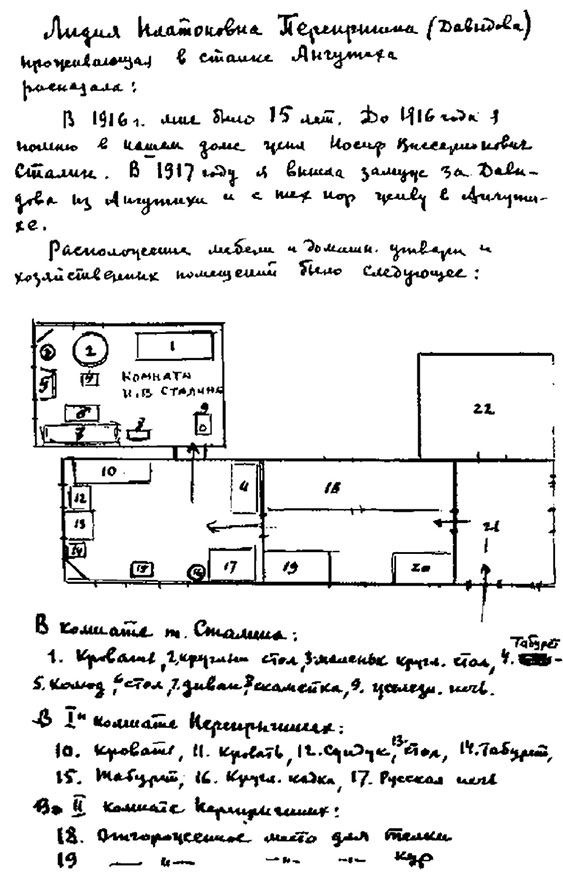 Лидия Платоновна Перепрыгина (Давыдова)
проживающая в станке Ангутиха
рассказала:
В 1916 г. мне было 15 лет. До 1916 года я
помню в нашем доме жил Иосиф Виссарионович
Сталин. В 1917 году я вышла замуж за Давы-
дова из Ангутихи и с тех пор живу в Ангути-
хе.
Расположение мебели и домашн. утвари и
хозяйственных помещений было следующее:
1
2
3
4
5
6
7
8
9
Комната
И.В. Сталина
22
10
4
12
13
14
15
16
17
18
19
20
21
В комнате т. Сталина:
1. Кровать, 2. круглый стол, 3. маленьк кругл. стол, 4. Табурет
5. Комод, 6 стол, 7. диван, 8 скамейка, 9. железн. печь.
В I й комнате Перепрыгиных:
10. Кровать, 11. Кровать, 12. Сундук, 13. стол, 14. Табурет,
15. Табурет, 16. Кругл. кадка, 17. Русская печь
Во II комнате Перепрыгиных:
18. Отгороженное место для телки
19 — " — — " — — " — кур